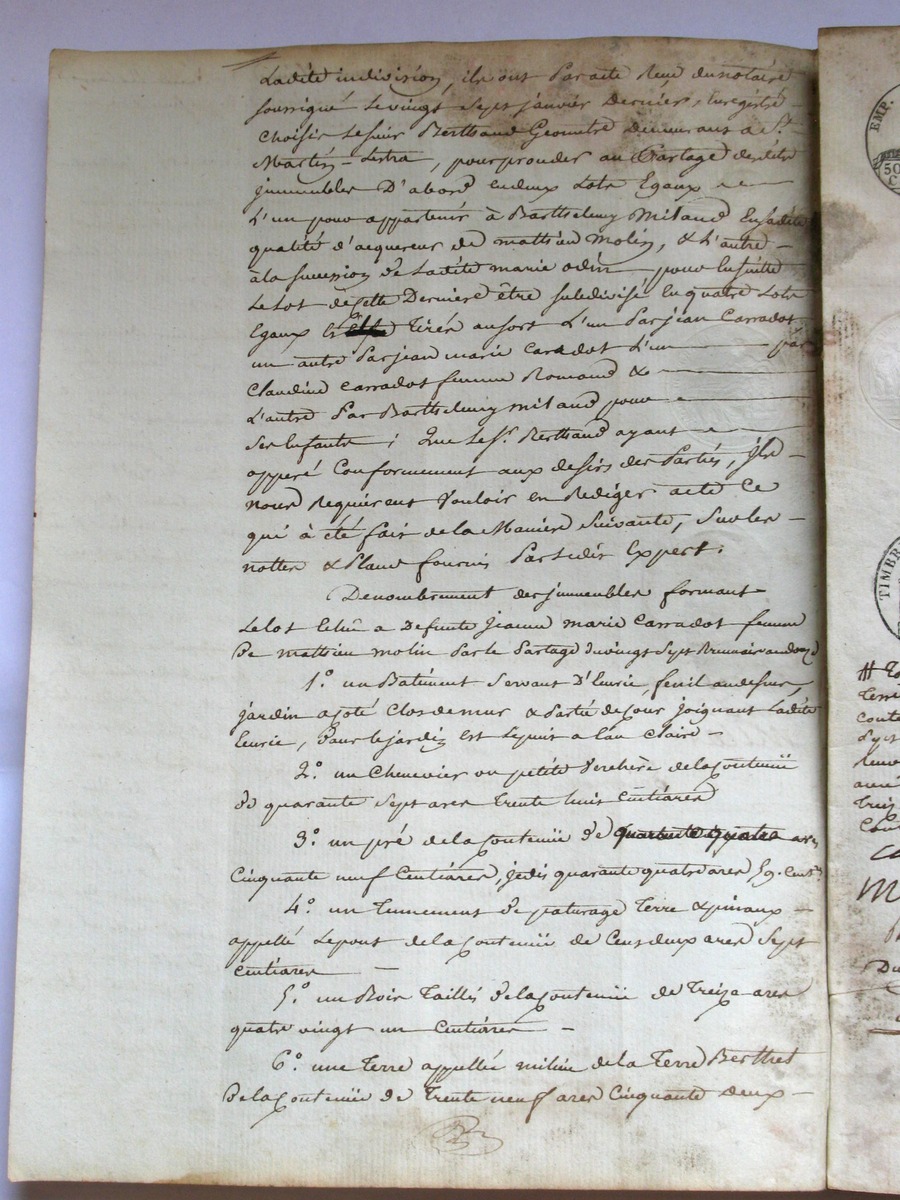 Ladite indivision, ils ont par acte reçu du notaire
soussigné le vingt sept janvier dernier, enregistré
choisis le sieur Berthaud Geometre demeurant a St
Martin - Lestra, pour proceder au Partage desdits
immeubles D'abord en deux Lots Egaux
L'un pour appartenir à Barthelemy Milaud en sadite
qualité d'acquereur de matthieu Molin, & L'autre -
à la succession de Ladite marie odin pour ensuite
Le Lot de cette Derniere être subdivisé en quatre Lots
Egaux tirés au sort L'un Par jean Carradot
un autre Par jean marie Carradot L'un par
Claudine Carradot femme Romand &
L'autre Par Barthelemy milaud pour
ses Enfants ; Que le Sr. Berthaud ayant
opperé Conformement aux desirs des Parties, ils -
nous Requierent vouloir en Rediger acte Ce
qui à été fait de la Maniere Suivante, Sur les -
nottes & Plans fournis Par ledit Expert.
Denombrement des jmmeubles formant
Le Lot Echu a Defunte Jeanne marie Carradot femme
De matthieu molin Par le Partage du vingt Sept
1.° un Batiment servant D'Ecurie fenil au dessus,
jardin a coté Clos de mur & Partie de Cour joignant Ladite
Ecurie, dans le jardin Est
2.° un Chenevier ou petite verchère de la Contenüe
de quarante Sept ares trente huit Centiares
3.° un pré de la Contenüe de quarante quatre ares
Cinquante neuf Centiares, je dis quarante quatre ares 59. Cent.
4.° un tennement de paturage Terre & pinaux -
appellé Le pont de la Contenüe de Cent deux ares Sept
Centiares -
5.° un Bois Taillis de la Contenüe de Treize ares
quatre vingt un Centiares -
6.° une Terre appellée milieu de la Terre Berthet
De la Contenüe de Trente neuf ares Cinquante deux -
EMP.
50
C
TIMBR